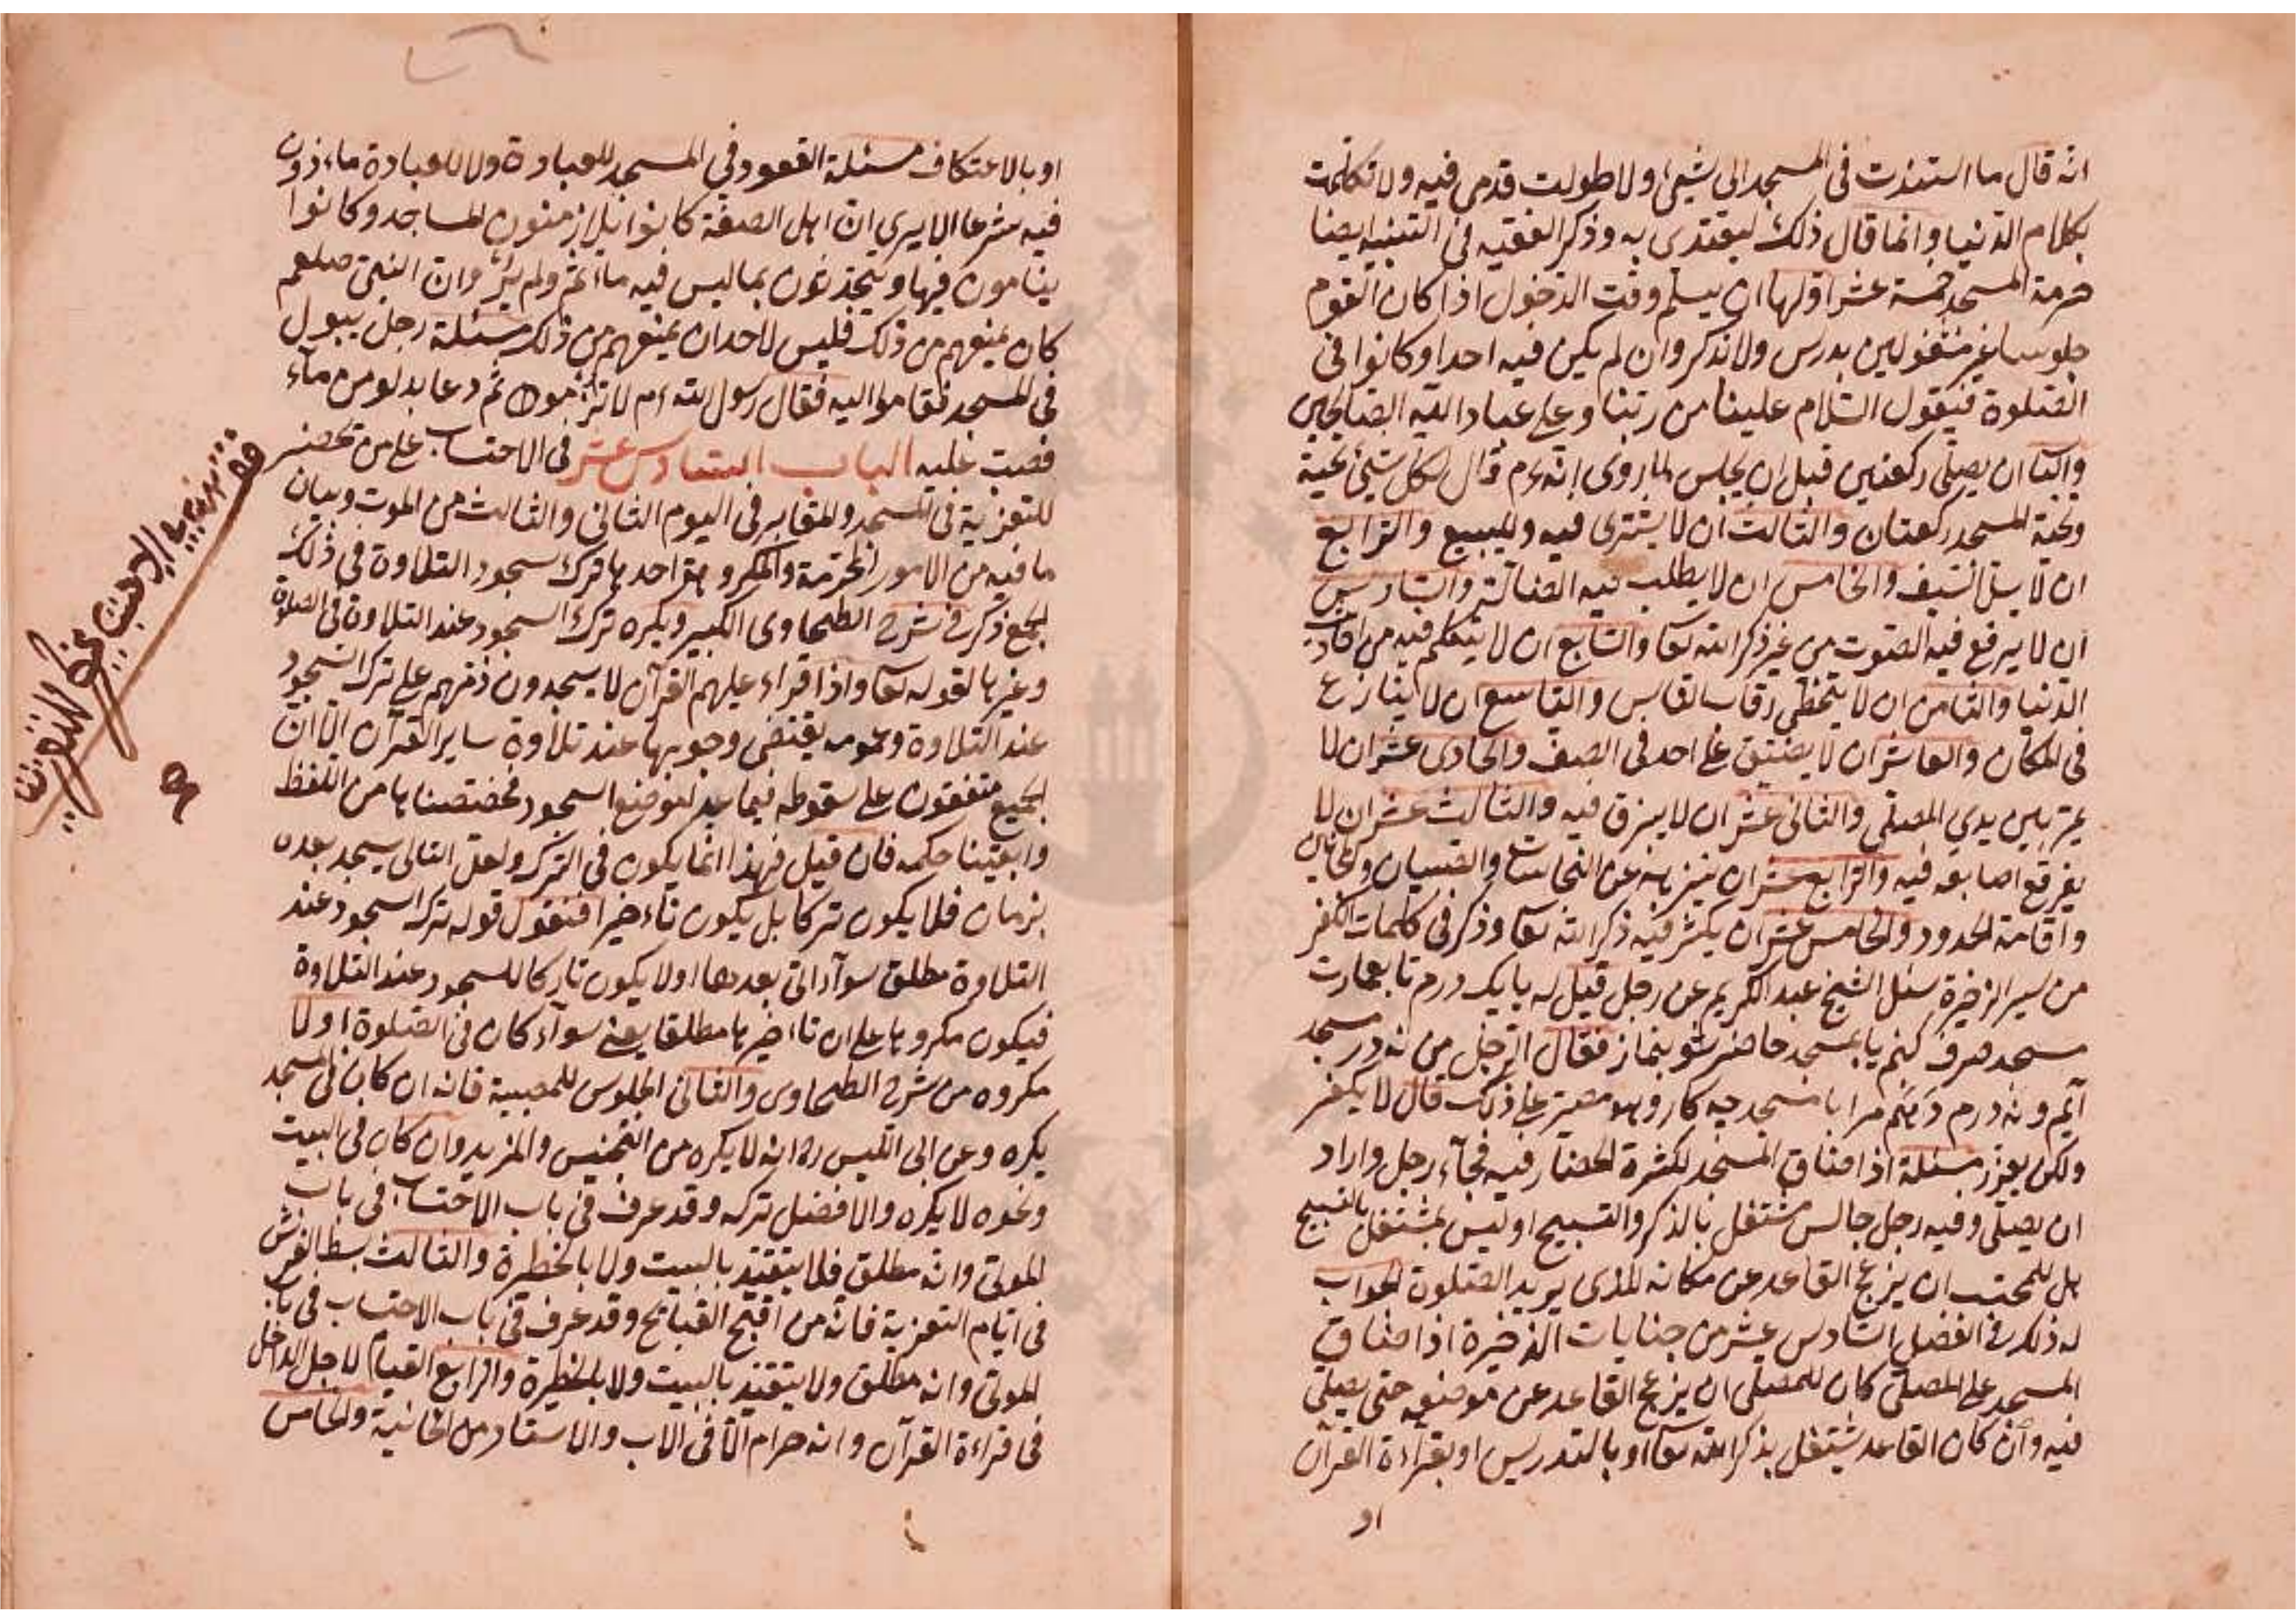 انه قال ما استندت في المسجد الى شيئ ولا طولت قدمى فيه ولا تكلمت
بكلام الدنيا وانما قال ذلك ليقتدى به وذكر الفقيه في التنبيه ايضا
حرمة المسجد خمسة عشر اولها ان يسلم وقت الدخول اذا كان القوم
جلوسا غير مشغولين بدرس ولا ذكر وان لم يكن فيه احد او كانوا في
الصلوة فيقول السلام علينا من ربنا وعلى عباد الله الصالحين
والثا ان يصلى ركعتين قبل ان يجلس لما روى انه ءم قال لكل شيئ تحية
وتحية المسجد ركعتان والثالث ان لا يشترى فيه ولا يبيع والرابع
ان لا يسل السيف والخامس ان لا يطلب فيه الضالة والسادس
ان لا يرفع فيه الصوت من غير ذكر الله تعا والسابع ان لا يتكلم فيه من احاديث
الدنيا والثامن ان لا يتخطى رقاب الناس والتاسع ان لا ينازع
في المكان والعاشر ان لا يضيق على احد في الصف والحادى عشر ان لا
يمر بين يدي المصلى والثانى عشر ان لا يبزق فيه والثالث عشر ان لا
يفرقع اصابعه فيه والرابع عشر ان ينزهه عن النجاسات والصبيان والمجانين
واقامة الحدود والخامس عشر ان يكثر فيه ذكر الله تعا وذكر في كلمات الكفر
من سير الذخيرة سئل الشيخ عبد الكريم عن رجل قيل له بايك درم تا بعمارت
مسجد صرف كنم يا بمسجد حاضر شو بنماز فقال الرجل من نه در مسجد
آيم ونه درم دهم مرا با مسجد چه كار وهو مصر على ذلك قال لا يكفر
ولكن يعزر مسئلة اذا ضاق المسجد لكثرة الحضار فيه فجآء رجل واراد
ان يصلى وفيه رجل جالس مشتغل بالذكر والتسبيح او ليس بمشتغل بالتسبيح
هل للمحتسب ان يزعج القاعد عن مكانه الذى يريد الصلوة الجواب
له ذلك في الفصل السادس عشر من جنايات الذخيرة اذا ضاق
المسجد على المصلى كان للمصلى ان يزعج القاعد عن موضعه حتى يصلى
فيه وان كان القاعد يشتغل بذكر الله تعا او بالتدريس او بقراءة القرآن
او
او بالاعتكاف مسئلة القعود في المسجد للعبادة ولا للعبادة ماءذون
فيه شرعا الا يرى ان اهل الصفة كانوا يلازمون المساجد وكانوا
ينامون فيها ويتحدثون بما ليس فيه ماءثم ولم يرو ان النبى صلعم
كان يمنعهم من ذلك فليس لاحد ان يمنعهم من ذلك مسئلة رجل يبول
في المسجد فقاموا اليه فقال رسول الله ءم لا تزرموه ثم دعا بدلو من مآء
فصبت عليه الباب السادس عشر في الاحتساب على من تحضر
للتعزية في المسجد والمقابر في اليوم الثانى والثالث من الموت وبيان
ما فيه من الامور المحرمة والمكروهة احدها ترك سجود التلاوة في ذلك
الجمع ذكر في شرح الطحاوى الكبير ويكره ترك السجود عند التلاوة في الصلوة
وغيرها لقوله تعا واذا قراء عليهم القرآن لا يسجدون ذمهم على ترك السجود
عند التلاوة وعمومه يقتضى وجوبها عند تلاوة ساير القرآن الا ان
الجميع متفقون على سقوطه فيما عدا مواضع السجود فخصصناها من اللفظ
وابقينا حكمه فان قيل فهذا انما يكون في الترك ولعل التالى يسجد بعده
بزمان فلا يكون تركا بل يكون تاءخيرا فنقول قوله ترك السجود عند
التلاوة مطلق سوآء اتى بعدها اولا يكون تاركا للسجود عند التلاوة
فيكون مكروها على ان تاءخيرها مطلقا يعنى سوآء كان في الصلوة اولا
مكروه من شرح الطحاوى والثانى الجلوس للمصيبة فانه ان كان في المسجد
يكره وعن ابى الليس ره انه لا يكره من التجنيس والمزيد وان كان في البيت
ونحوه لا يكره والافضل تركه وقد عرف في باب الاحتساب في باب
الموتى وانه مطلق فلا يتقيد بالبيت ولا بالحظيرة والثالث بسط الفرش
في ايام التعزية فانه من اقبح القبائح وقد عرف في باب الاحتساب في باب
الموتى وانه مطلق ولا يتقيد بالبيت ولا بالحظيرة والرابع القيام لاجل الداخل
في قراءة القرآن وانه حرام الا في الاب والاستاد من الخانية والخامس
في الاحتساب على للتعزية